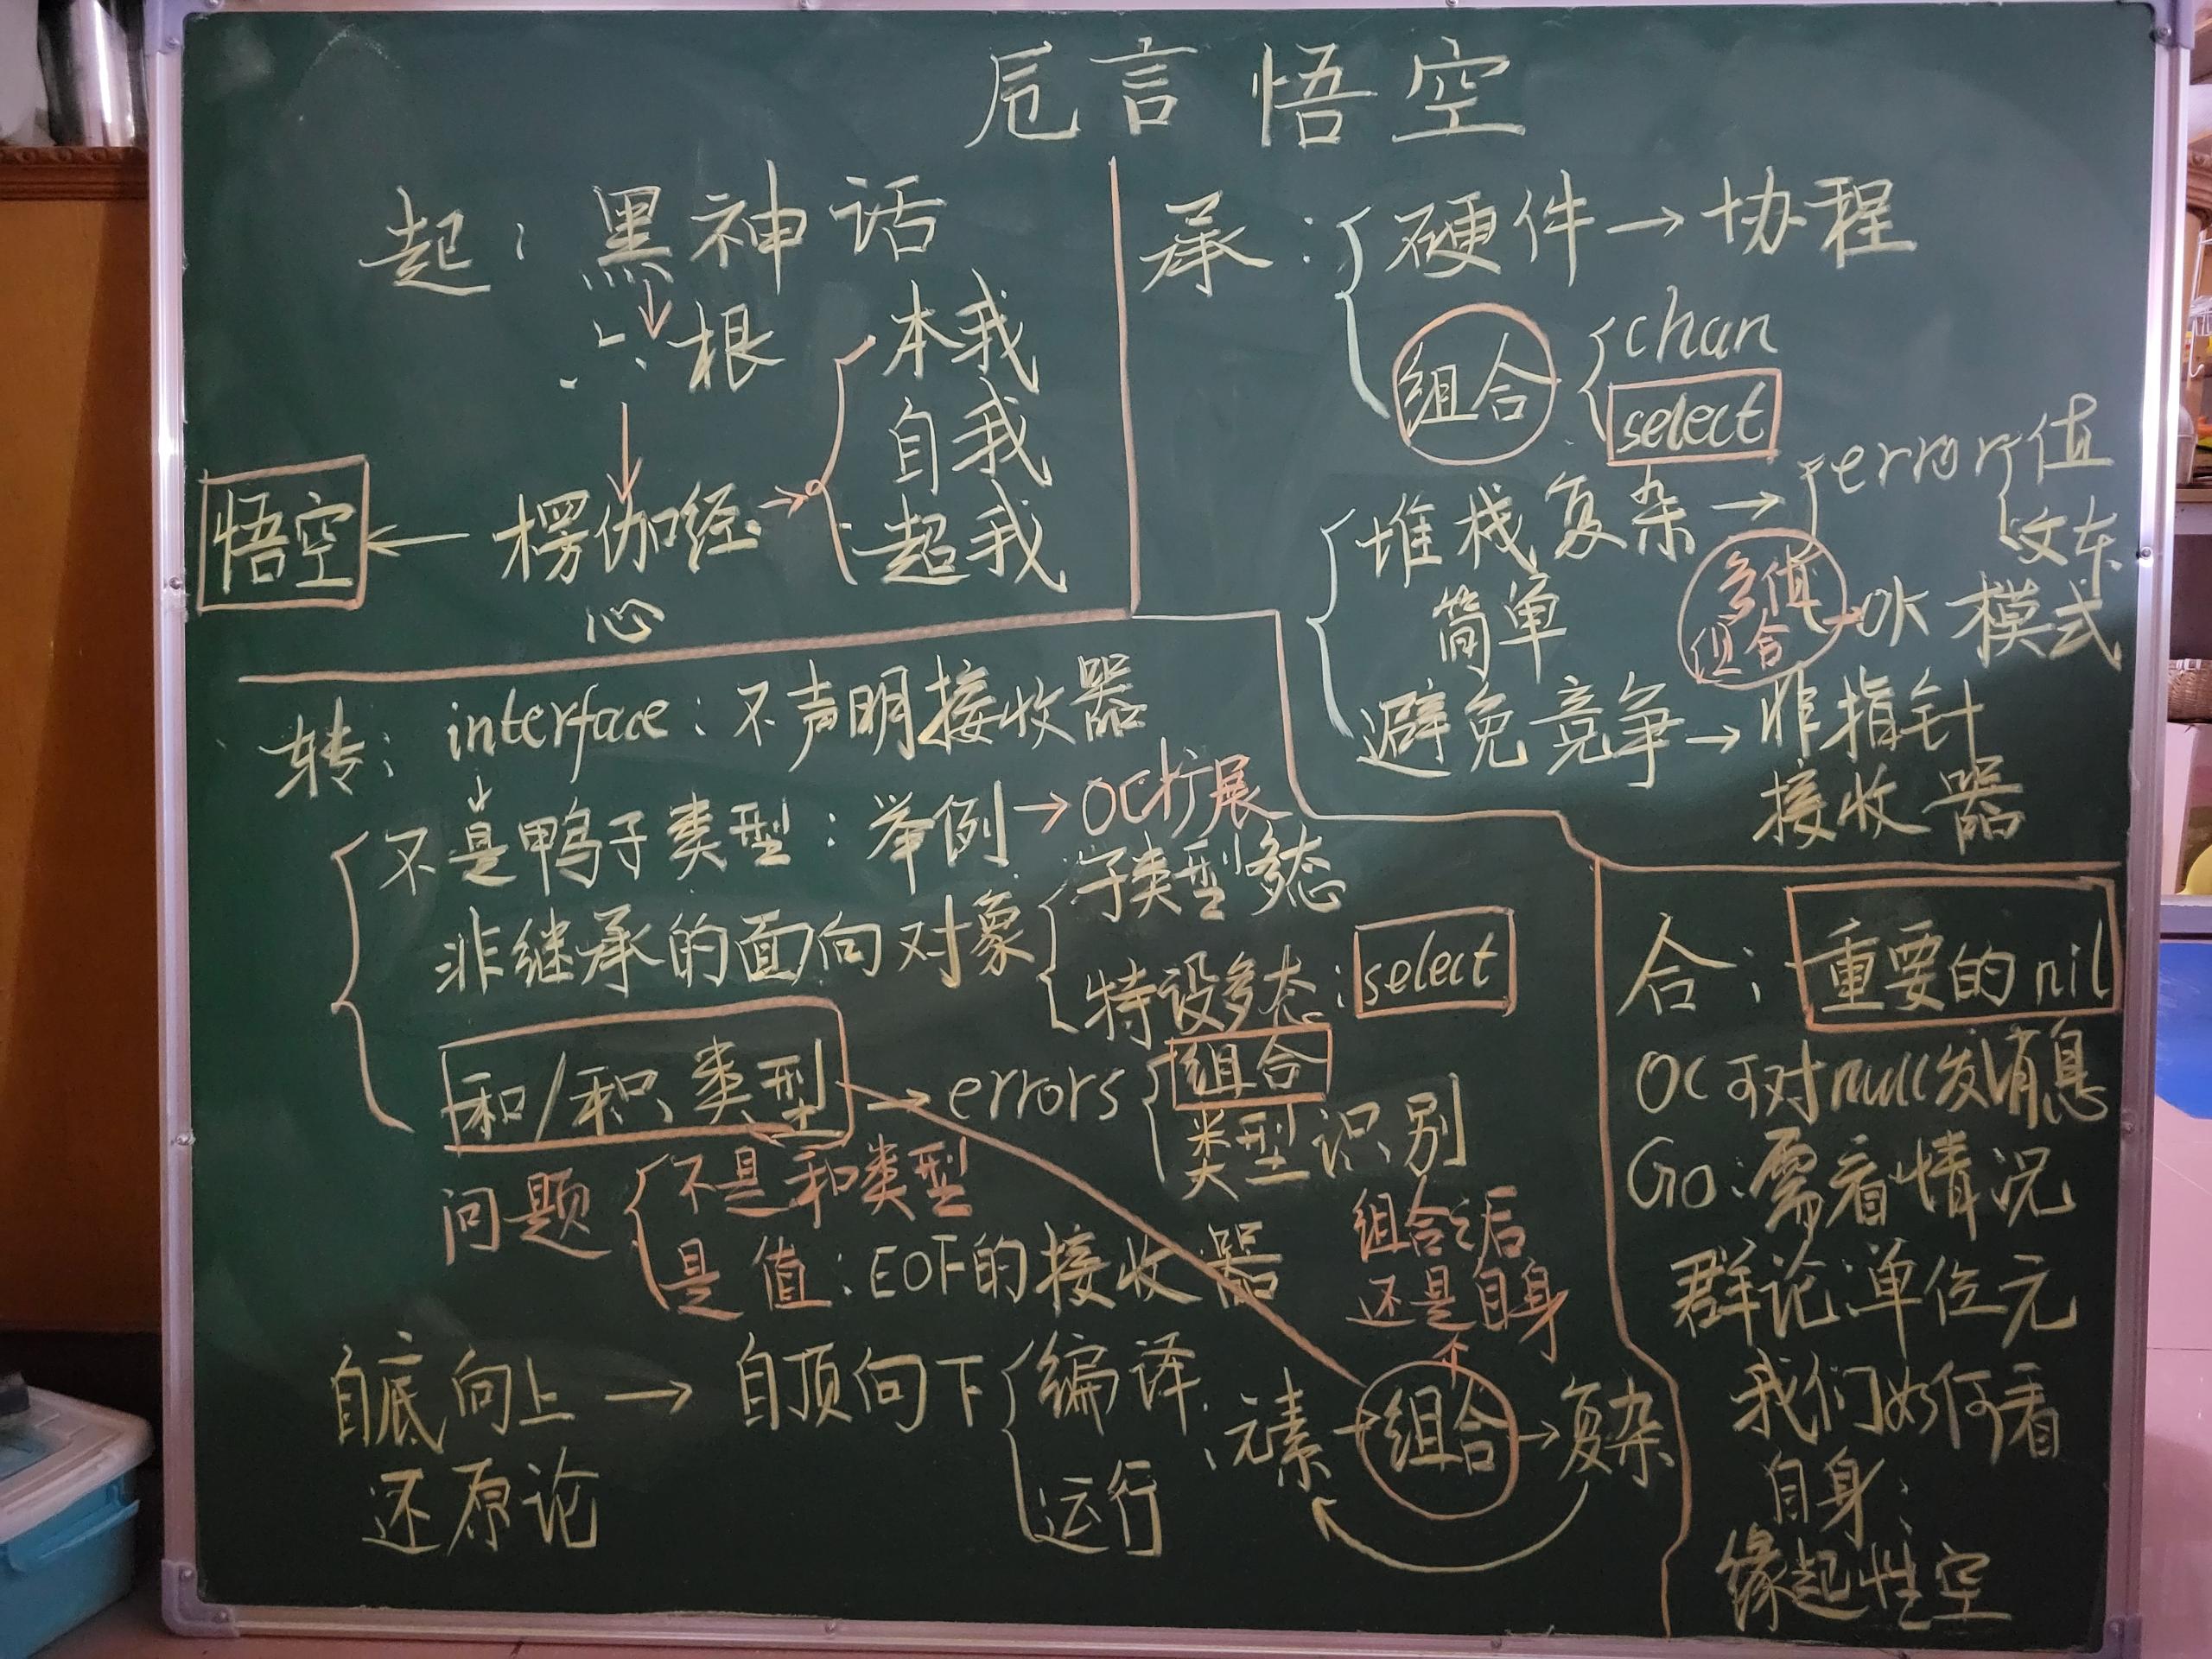 卮言悟空
起：黑神话
六根
本我
自我
超我
悟空 ← 楞伽经 →
心
承：硬件 → 协程
组合
chan
select
堆栈复杂 → error值
简单
多值
组合
OK模式
避免竞争 → 非指针
接收器
转：interface：不声明接收器
不是鸭子类型：举例 → OC扩展
非继承的面向对象
子类型多态
特设多态：select
和/积类型 → errors
组合
类型识别
问题
不是和类型
是值：EOF的接收器
自底向上 → 自顶向下
还原论
编译
运行
组合之后
还是自身
元素 → 组合 → 复杂
合：重要的nil
OC可对null发消息
Go：需看情况
群论：单位元
我们如何看
自身：
缘起性空